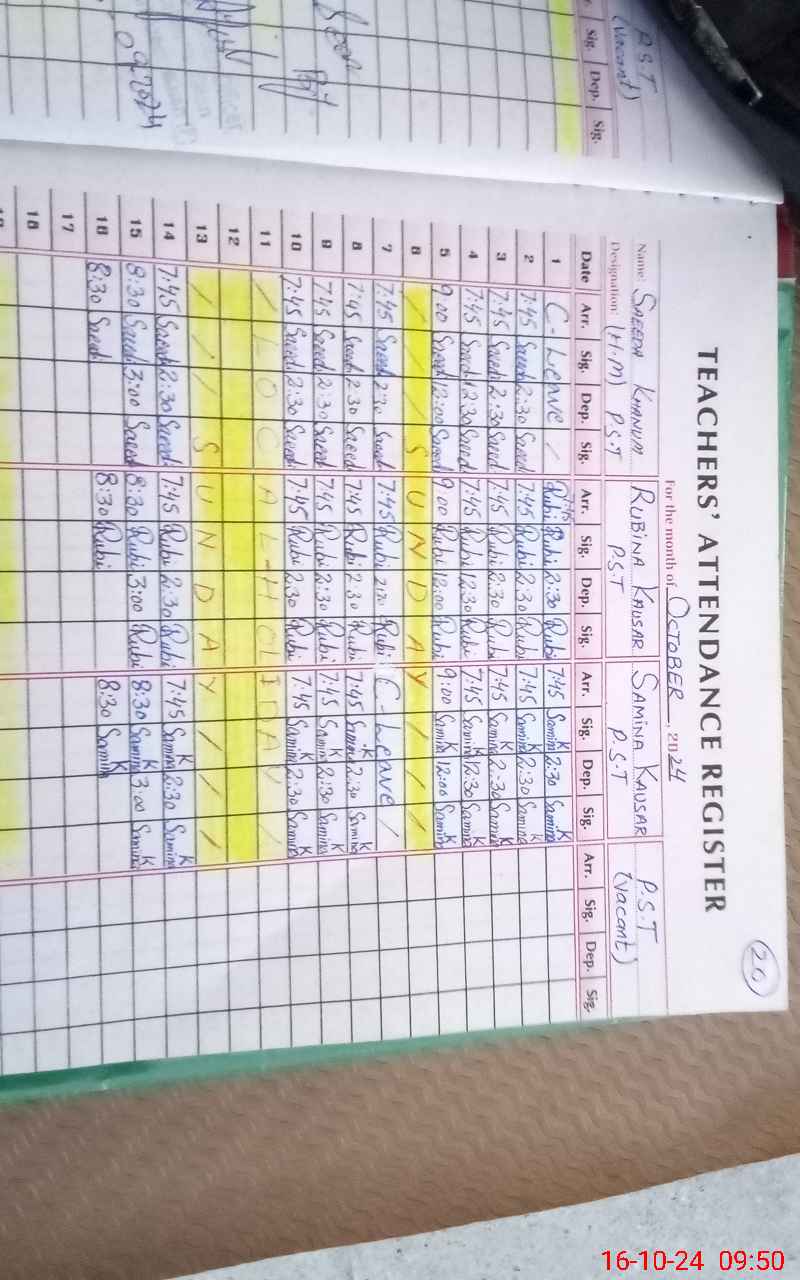 P.S.T
(Vacant)
Sig. Dep. Sig.
20
TEACHERS' ATTENDANCE REGISTER
For the month of OCTOBER, 2024
Name: SAEEDA KHANUM RUBINA KAUSAR SAMINA KAUSAR P.S.T
Designation: (H.M) P.S.T P.S.T P.S.T (Vacant)
Date Arr. Sig. Dep. Sig. Arr. Sig. Dep. Sig. Arr. Sig. Dep. Sig. Arr. Sig. Dep. Sig.
1 C-Leave / 7:45 Rubi 2:30 Rubi 7:45 Samina K 2:30 Samina K
2 7:45 Saeed 2:30 Saeed 7:45 Rubi 2:30 Rubi 7:45 Samina K 2:30 Samina K
3 7:45 Saeed 2:30 Saeed 7:45 Rubi 2:30 Rubi 7:45 Samina K 2:30 Samina K
4 7:45 Saeed 12:30 Saeed 7:45 Rubi 12:30 Rubi 7:45 Samina K 12:30 Samina K
5 9:00 Saeed 12:00 Saeed 9:00 Rubi 12:00 Rubi 9:00 Samina K 12:00 Samina K
6 / / / SUNDAY / / /
7 7:45 Saeed 2:30 Saeed 7:45 Rubi 2:30 Rubi C-Leave /
8 7:45 Saeed 2:30 Saeed 7:45 Rubi 2:30 Rubi 7:45 Samina K 2:30 Samina K
9 7:45 Saeed 2:30 Saeed 7:45 Rubi 2:30 Rubi 7:45 Samina K 2:30 Samina K
10 7:45 Saeed 2:30 Saeed 7:45 Rubi 2:30 Rubi 7:45 Samina K 2:30 Samina K
11 / LOCAL-HOLIDAY /
12
13 / / / SUNDAY / / /
14 7:45 Saeed 2:30 Saeed 7:45 Rubi 2:30 Rubi 7:45 Samina K 2:30 Samina K
15 8:30 Saeed 3:00 Saeed 8:30 Rubi 3:00 Rubi 8:30 Samina K 3:00 Samina K
16 8:30 Saeed 8:30 Rubi 8:30 Samina K
17
18
16-10-24 09:50